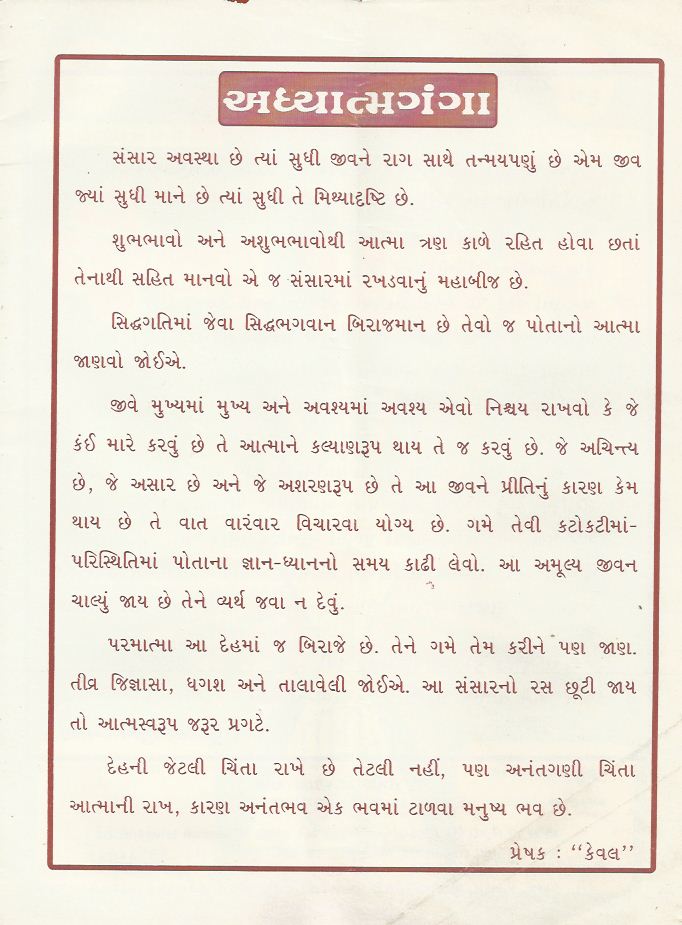 અધ્યાત્મગંગા
સંસાર અવસ્થા છે ત્યાં સુધી જીવને રાગ સાથે તન્મયપણું છે એમ જીવ
જ્યાં સુધી માને છે ત્યાં સુધી તે મિથ્યાદૃષ્ટિ છે.
શુભભાવો અને અશુભભાવોથી આત્મા ત્રણ કાળે રહિત હોવા છતાં
તેનાથી સહિત માનવો એ જ સંસારમાં રખડવાનું મહાબીજ છે.
સિદ્ધગતિમાં જેવા સિદ્ધભગવાન બિરાજમાન છે તેવો જ પોતાનો આત્મા
જાણવો જોઈએ.
જીવે મુખ્યમાં મુખ્ય અને અવશ્યમાં અવશ્ય એવો નિશ્ચય રાખવો કે જે
કંઈ મારે કરવું છે તે આત્માને કલ્યાણરૂપ થાય તે જ કરવું છે. જે અચિન્ત્ય
છે, જે અસાર છે અને જે અશરણરૂપ છે તે આ જીવને પ્રીતિનું કારણ કેમ
થાય છે તે વાત વારંવાર વિચારવા યોગ્ય છે. ગમે તેવી કટોકટીમાં-
પરિસ્થિતિમાં પોતાના જ્ઞાન-ધ્યાનનો સમય કાઢી લેવો. આ અમૂલ્ય જીવન
ચાલ્યું જાય છે તેને વ્યર્થ જવા ન દેવું.
પરમાત્મા આ દેહમાં જ બિરાજે છે. તેને ગમે તેમ કરીને પણ જાણ.
તીવ્ર જિજ્ઞાસા, ધગશ અને તાલાવેલી જોઈએ. આ સંસારનો રસ છૂટી જાય
તો આત્મસ્વરૂપ જરૂર પ્રગટે.
દેહની જેટલી ચિંતા રાખે છે તેટલી નહીં, પણ અનંતગણી ચિંતા
આત્માની રાખ, કારણ અનંતભવ એક ભવમાં ટાળવા મનુષ્ય ભવ છે.
પ્રેષક : ‘‘કેવલ’’